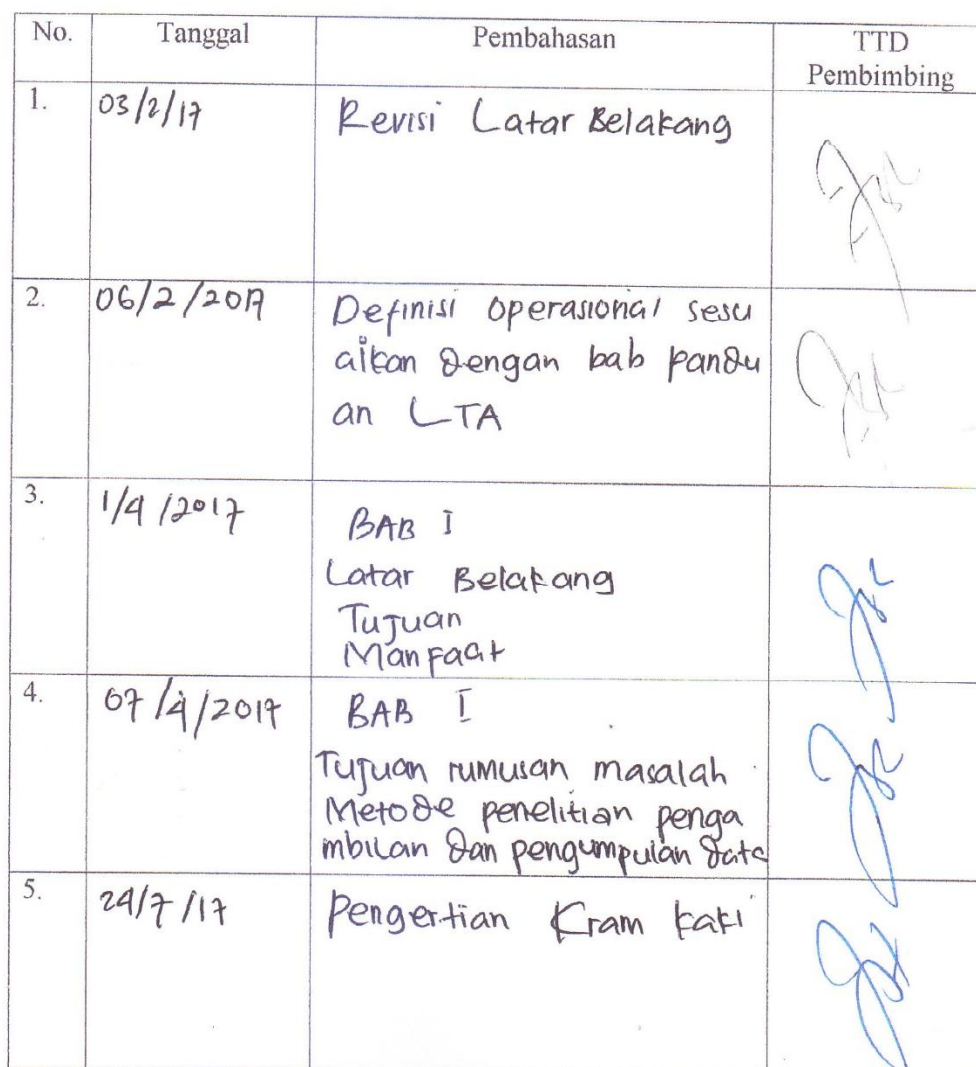 No. Tanggal Pembahasan TTD
Pembimbing
1. 03/2/17 Revisi Latar Belakang
2. 06/2/2017 Definisi operasional sesu
aikan dengan bab pandu
an LTA
3. 1/4/2017 BAB I
Latar Belakang
Tujuan
Manfaat
4. 07/4/2017 BAB I
Tujuan rumusan masalah
Metode penelitian penga
mbilan dan pengumpulan data
5. 24/7/17 Pengertian Kram kaki